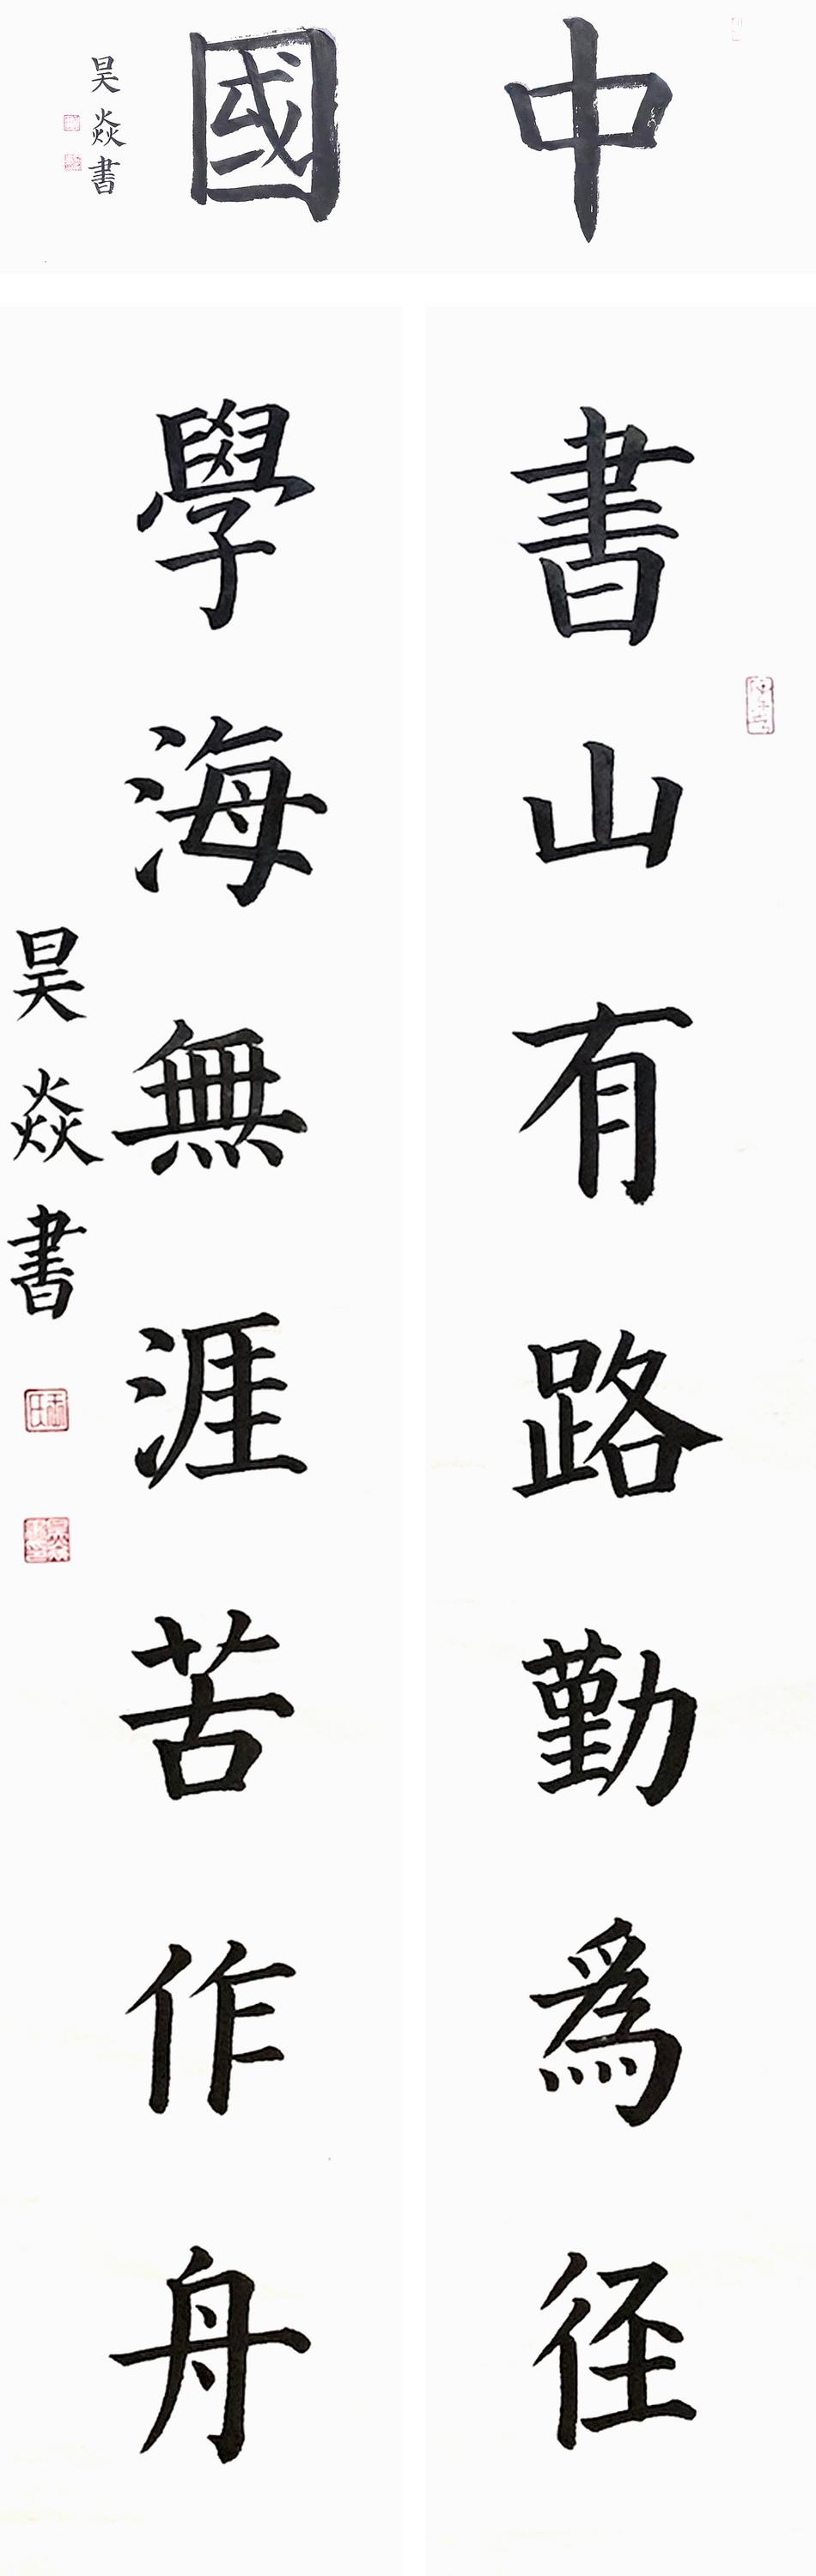 中國
昊焱書
書山有路勤爲径
學海無涯苦作舟
昊焱書